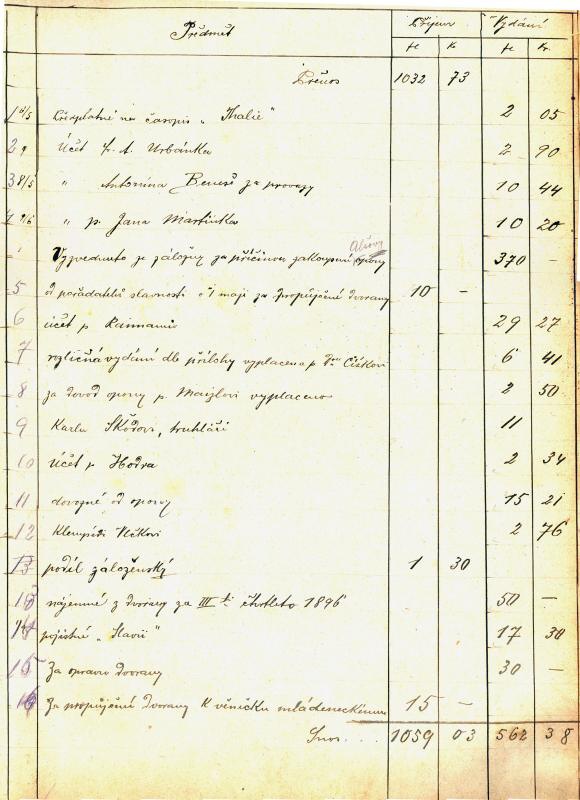 Předmět Příjem Vydání
zl Kr zl Kr.
Přenos 1032 73
1 Předplatné na časopis „Thalie" 2 05
2 Účet Fr. A. Urbánka 2 90
3 8/5 „ Antonína Beneš za provazy 10 44
4 „ p. Jana Martínka 10 20
Vyzvednuto ze záložny za příčinou zakoupení opony 370 –
5 od pořadatelů slavnosti 1 máje za propůjčení dvorany 10 –
6 účet p 29 27
7 různá vydání dle přílohy vyplacena p. Čížkovi 6 41
8 za dovoz opony p. Maizlovi vyplaceno 2 50
9 Karlu Škodovi, truhláři 11
10 účet p Hodra 2 34
11 dovozné od opony 15 21
12 Klempíři Vlčkovi 2 76
13 podíl záloženský 1 30
13 nájemné z dvorany za III tí čtvrtletí 1896 50 –
14 pojistné „Slavii" 17 30
15 Za opravu dvorany 30 –
16 Za propůjčení dvorany k věnečku mládeneckému 15 –
Snos . . . 1059 03 562 38